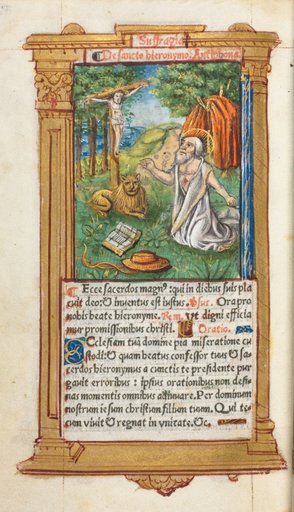 Suffragia
De sancto hieronymo. Antiphona.
Ecce sacerdos magn⁹: qui in diebus suis pla
cuit deo: & inuentus est iustus. Vsus. Ora pro
nobis beate hieronyme. Resp. Vt digni efficia
mur promissionibus christi. Oratio.
Ecclesiam tuā domine pia miseratione cu
stodi: & quam beatus confessor tuus & sa
cerdos hieronymus a cunctis te presidente pur
gauit erroribus: ipsius orationibus non desi
nas momentis omnibus adiuuare. Per dominum
nostrum iesum christum filium tuum. Qui te
cum viuit & regnat in vnitate. &c.